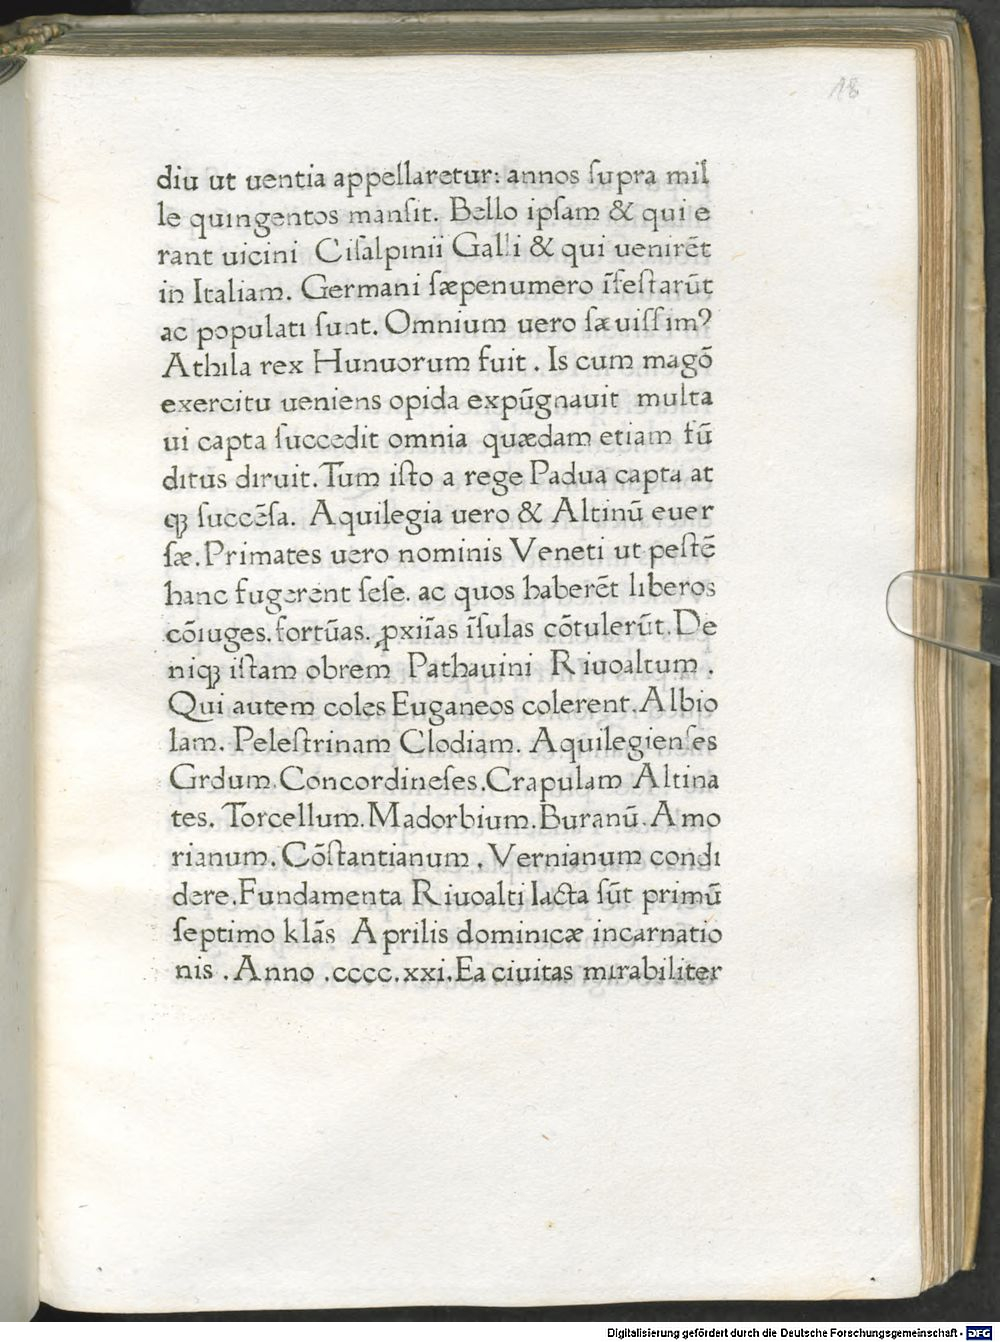 18
diu ut uentia appellaretur: annos ſupra mil
le quingentos manſit. Bello ipſam & qui e
rant uicini Ciſalpinii Galli & qui uenirēt
in Italiam. Germani ſæpenumero īfeſtarūt
ac populati ſunt. Omnium uero ſæuiſſimꝰ
Athila rex Hunuorum fuit . Is cum magō
exercitu ueniens opida expūgnauit multa
ui capta ſuccedit omnia quædam etiam fū
ditus diruit. Tum iſto a rege Padua capta at
qꝫ ſuccēſa. Aquilegia uero & Altinū euer
ſæ. Primates uero nominis Veneti ut peſtē
hanc fugerent ſeſe. ac quos haberēt liberos
cōiuges. fortūas. ꝓxiīas īſulas cōtulerūt. De
niqꝫ iſtam obrem Pathauini Riuoaltum .
Qui autem coles Euganeos colerent. Albio
lam. Peleſtrinam Clodiam. Aquilegienſes
Grdum. Concordineſes. Crapulam Altina
tes. Torcellum. Madorbium. Buranū. Amo
rianum. Cōſtantianum . Vernianum condi
dere. Fundamenta Riuoalti Iacta ſūt primū
ſeptimo klās Aprilis dominicæ incarnatio
nis . Anno .cccc.xxi. Ea ciuitas mirabiliter
Digitalisierung gefördert durch die Deutsche Forschungsgemeinschaft - DFG